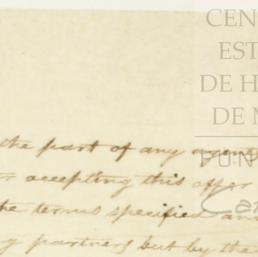 CEN
EST
DE H
DE M
FUN
Ca
the part of any
accepting this offer
he terms specified an
y partners but by the